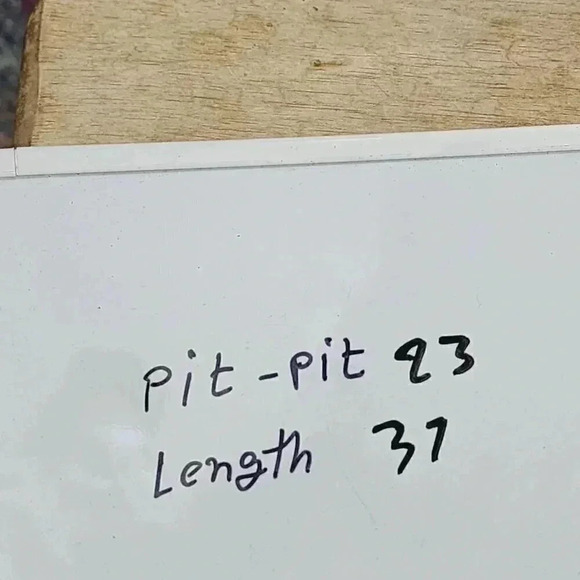 Pit-Pit 23
Length 37